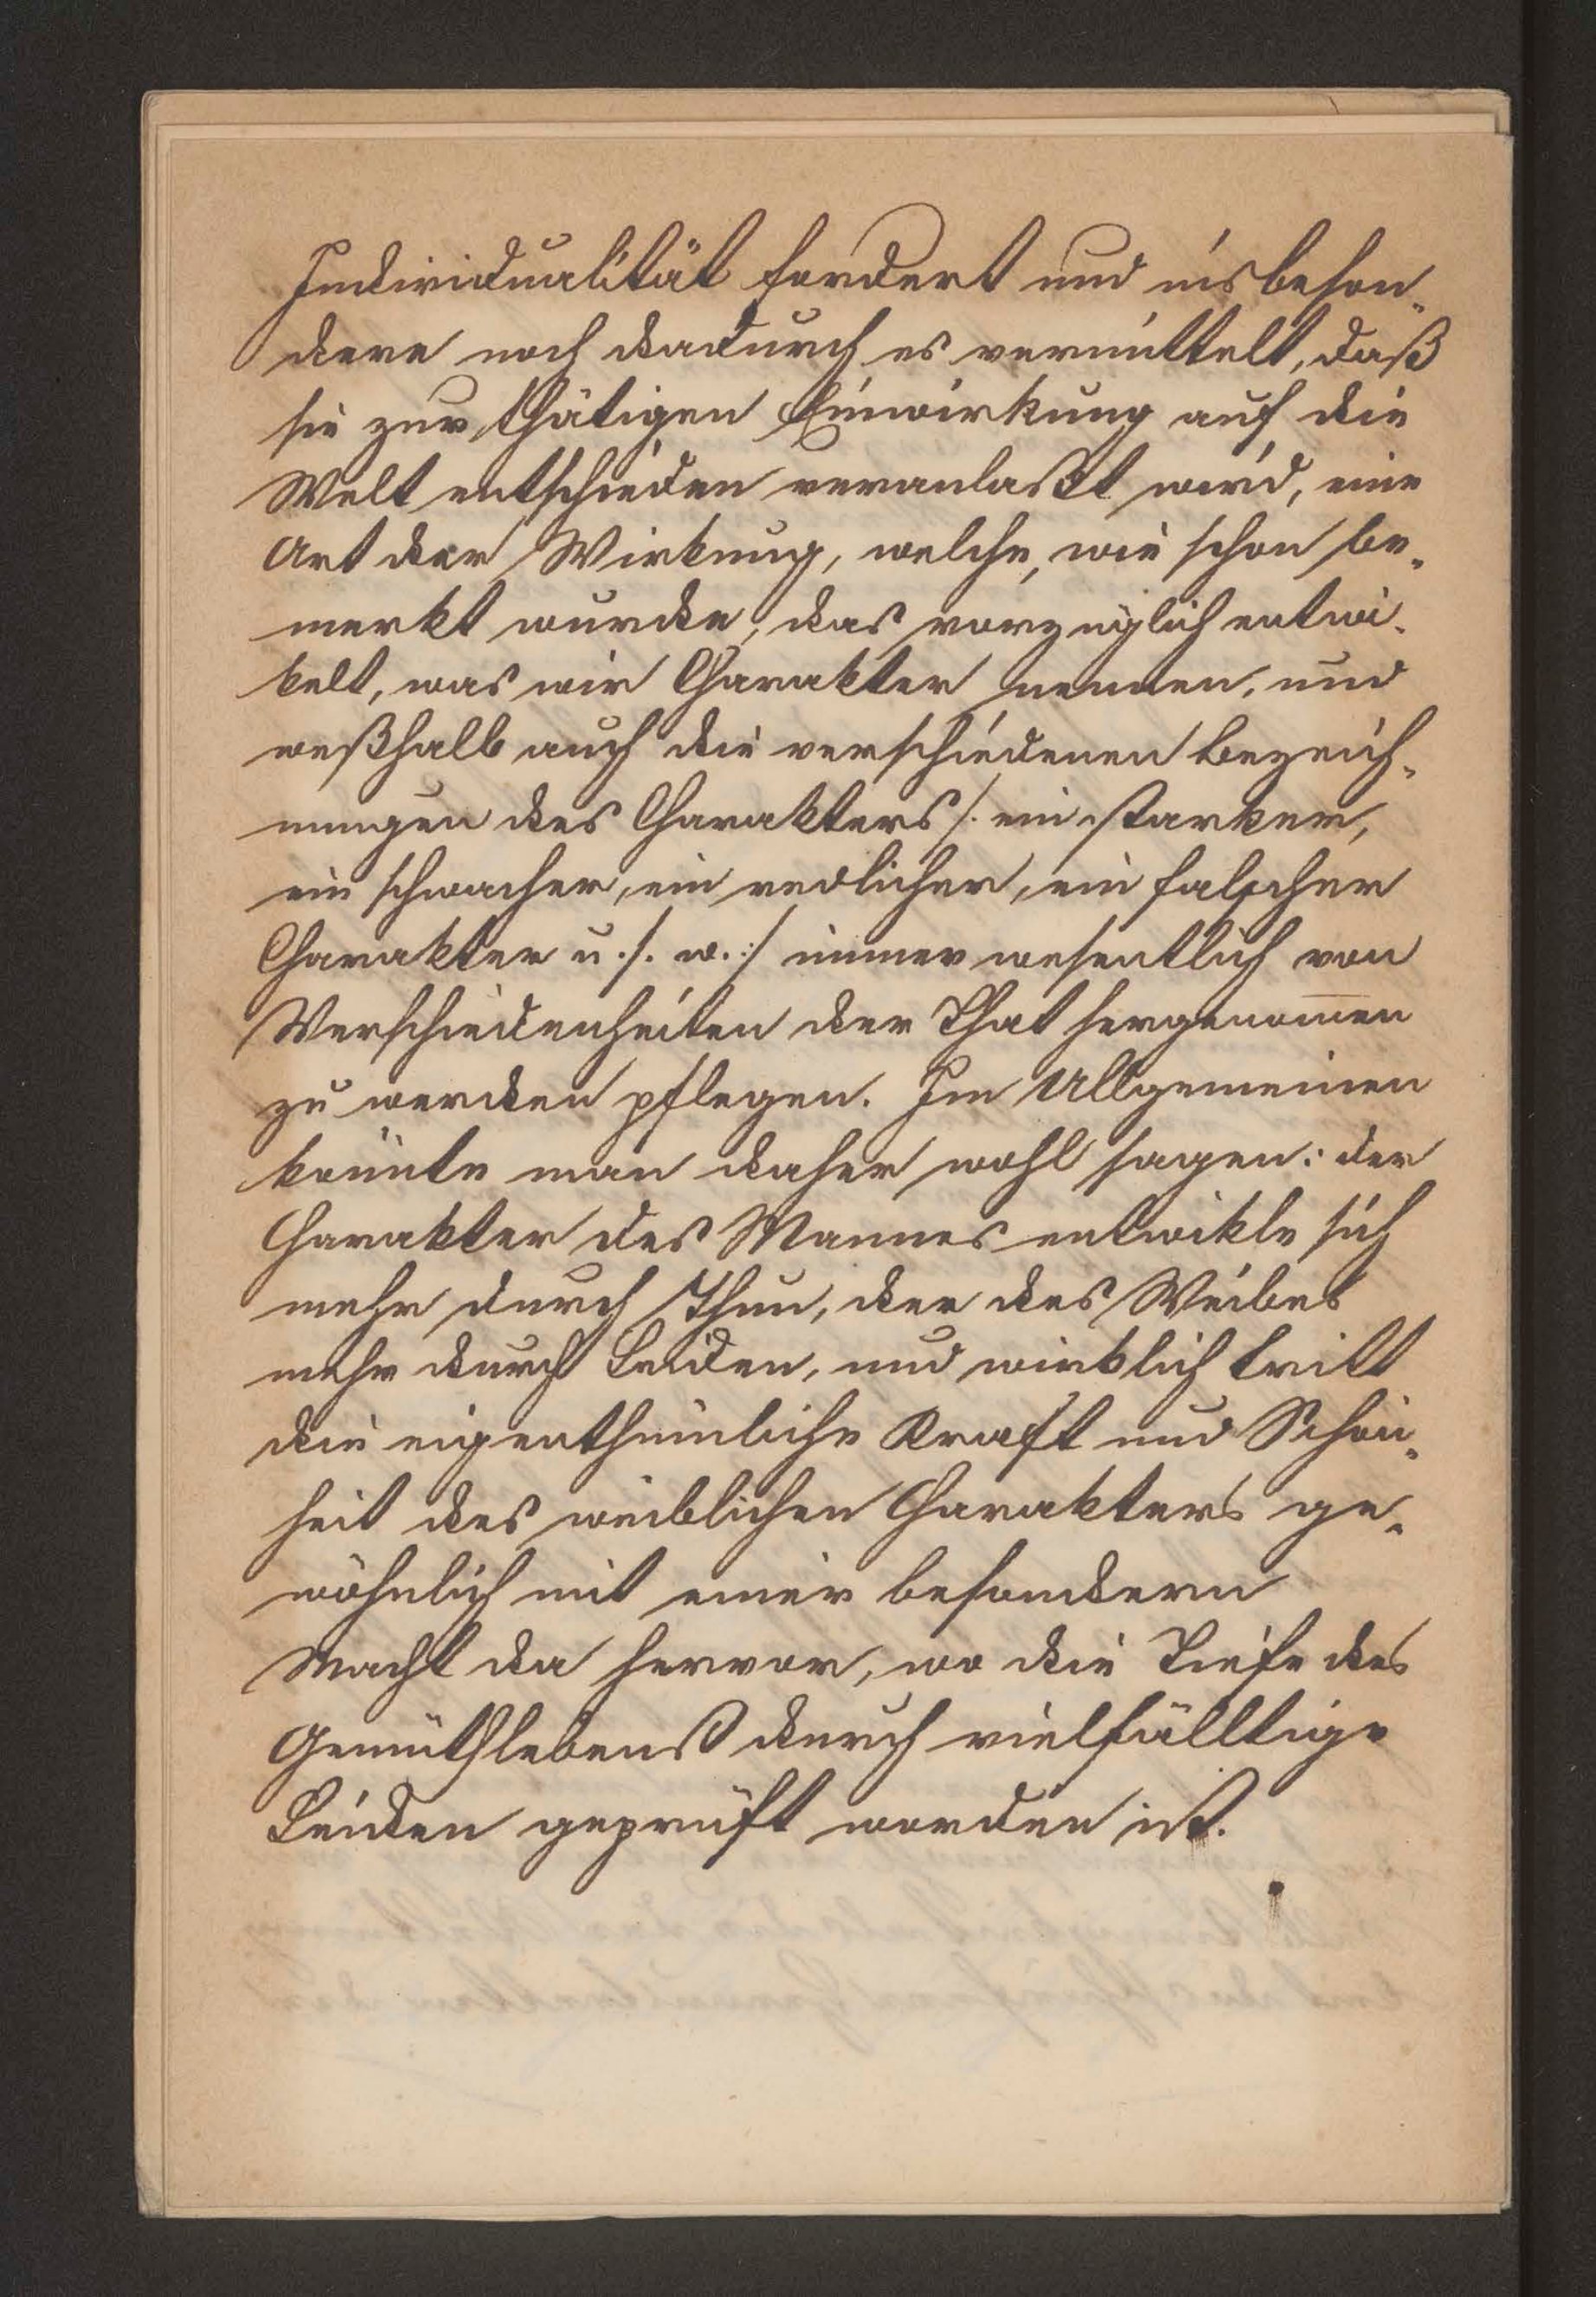 Individualität fordert und insbeson-
dere noch dadurch es vermittelt, daß
sie zur thätigen Einwirkung auf die
Welt entschieden veranlaßt wird, eine
Art der Wirkung, welche, wie schon be-
merkt wurde, das vorzüglich entwi-
kelt, was wir Charakter nennen, und
weßhalb auch die verschiedenen Bezeich-
nungen des Charakters /: ein starker,
ein schwacher, ein redlicher, ein falscher
Charakter u. s. w. :/ immer wesentlich von
Verschiedenheiten der That hergenom̅en
zu werden pflegen. Im Allgemeinen
könnte man daher wohl sagen: der
Charakter des Mannes entwikle sich
mehr durch Thun, der des Weibes
mehr durch Leiden, und wirklich tritt
die eigenthümliche Kraft und Schön-
heit des weiblichen Charakters ge-
wöhnlich mit einer besondern
Macht da hervor, wo die Tiefe des
Gemüthslebens durch vielfälltige
Leiden geprüft worden ist.